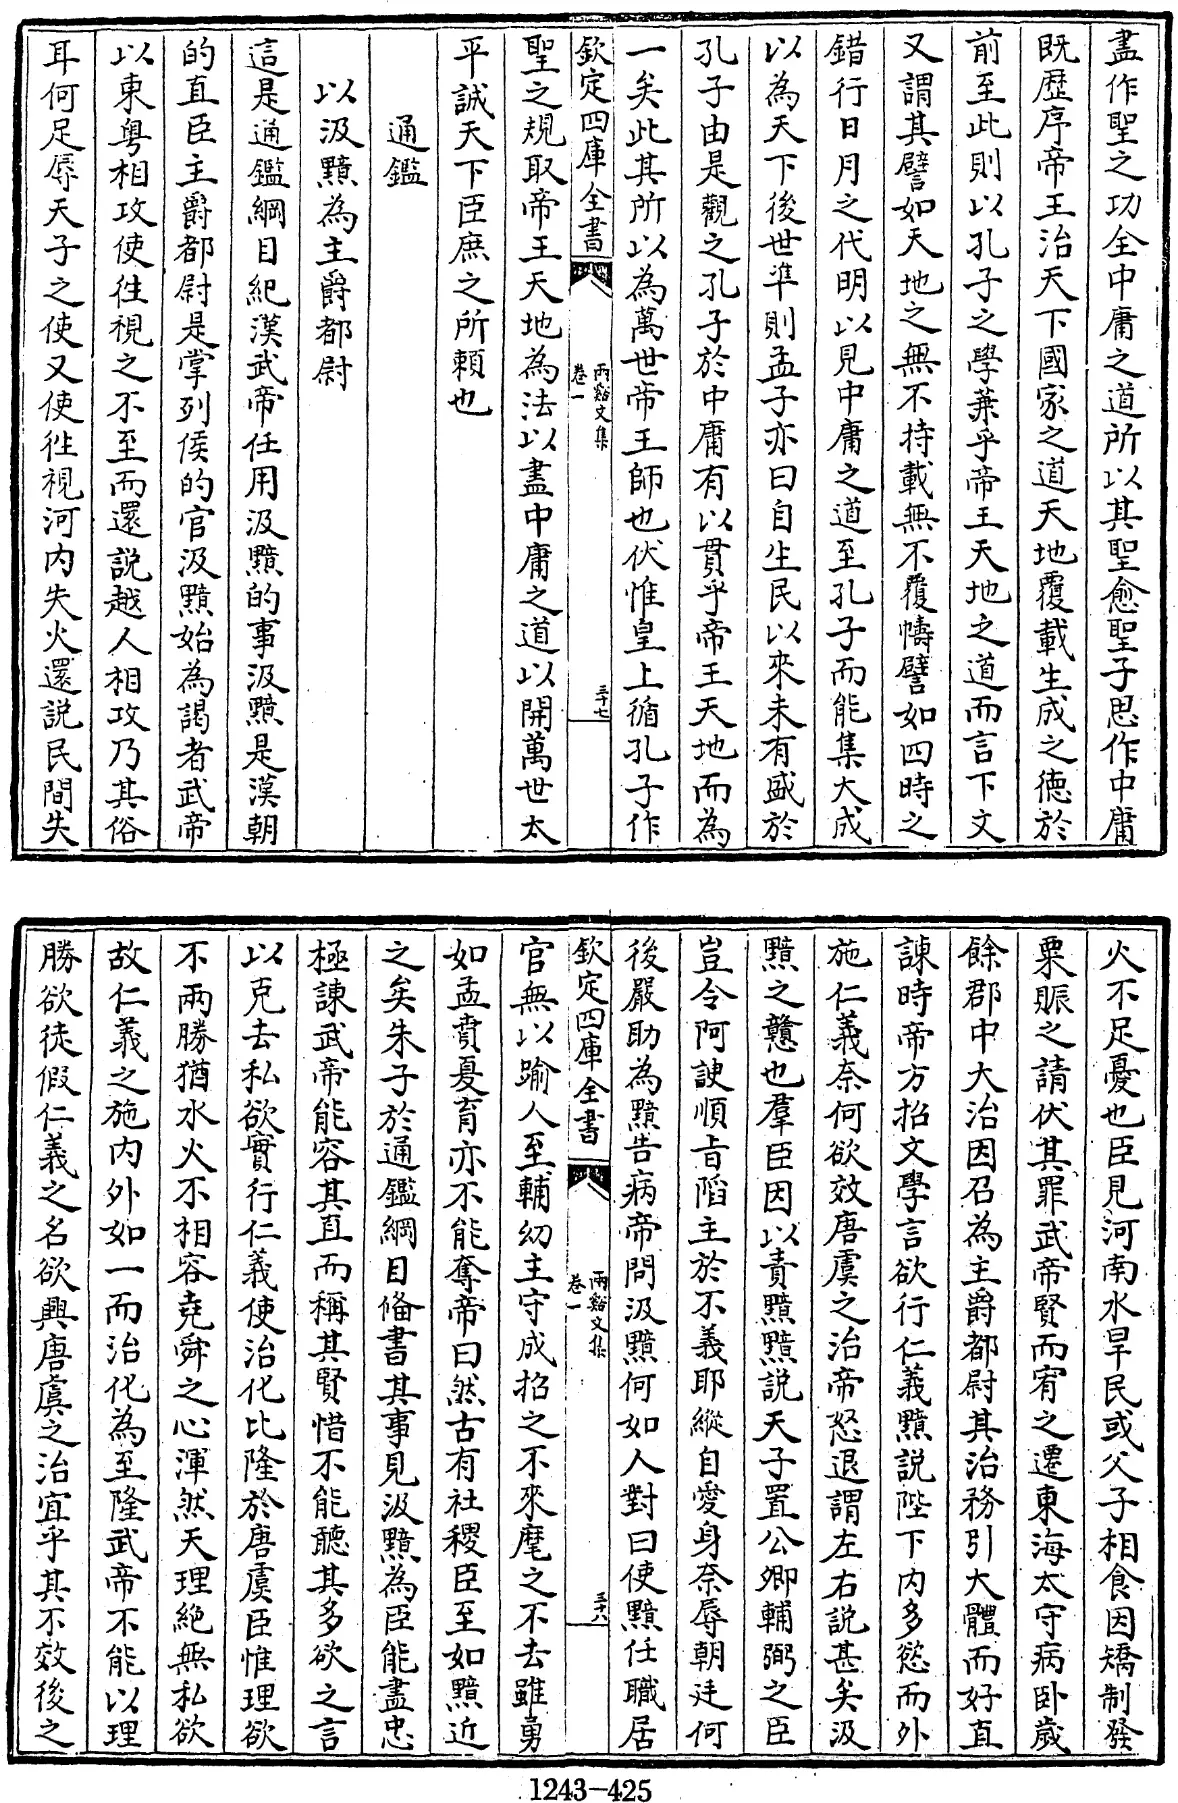 盡作聖之功全中庸之道所以其聖愈聖子思作中庸
既歴序帝王治天下國家之道天地覆載生成之德於
前至此則以孔子之學兼乎帝王天地之道而言下文
又謂其譬如天地之無不持載無不覆幬譬如四時之
錯行日月之代明以見中庸之道至孔子而能集大成
以為天下後世準則孟子亦曰自生民以來未有盛於
孔子由是觀之孔子於中庸有以貫乎帝王天地而為
一矣此其所以為萬世帝王師也伏惟皇上循孔子作
欽定四庫全書
兩谿文集
卷一
三十七
聖之規取帝王天地為法以盡中庸之道以開萬世太
平誠天下臣庶之所賴也
通鑑
以汲黯為主爵都尉
這是通鑑綱目紀漢武帝任用汲黯的事汲黯是漢朝
的直臣主爵都尉是掌列侯的官汲黯始為謁者武帝
以東粤相攻使徃視之不至而還説越人相攻乃其俗
耳何足辱天子之使又使徃視河内失火還説民間失
火不足憂也臣見河南水旱民或父子相食因矯制發
粟賑之請伏其罪武帝賢而宥之遷東海太守病卧歲
餘郡中大治因召為主爵都尉其治務引大體而好直
諫時帝方招文學言欲行仁義黯説陛下内多慾而外
施仁義奈何欲效唐虞之治帝怒退謂左右説甚矣汲
黯之戇也羣臣因以責黯黯説天子置公卿輔弼之臣
豈令阿諛順㫖䧟主於不義耶縱自愛身奈辱朝廷何
後嚴助為黯告病帝問汲黯何如人對曰使黯任職居
欽定四庫全書
兩谿文集
卷一
三十八
官無以踰人至輔幼主守成招之不來麾之不去雖勇
如孟賁夏育亦不能奪帝曰然古有社稷臣至如黯近
之矣朱子於通鑑綱目備書其事見汲黯為臣能盡忠
極諫武帝能容其直而稱其賢惜不能聽其多欲之言
以克去私欲實行仁義使治化比隆於唐虞臣惟理欲
不兩勝猶水火不相容堯舜之心渾然天理絶無私欲
故仁義之施内外如一而治化為至隆武帝不能以理
勝欲徒假仁義之名欲興唐虞之治宜乎其不效後之
1243-425